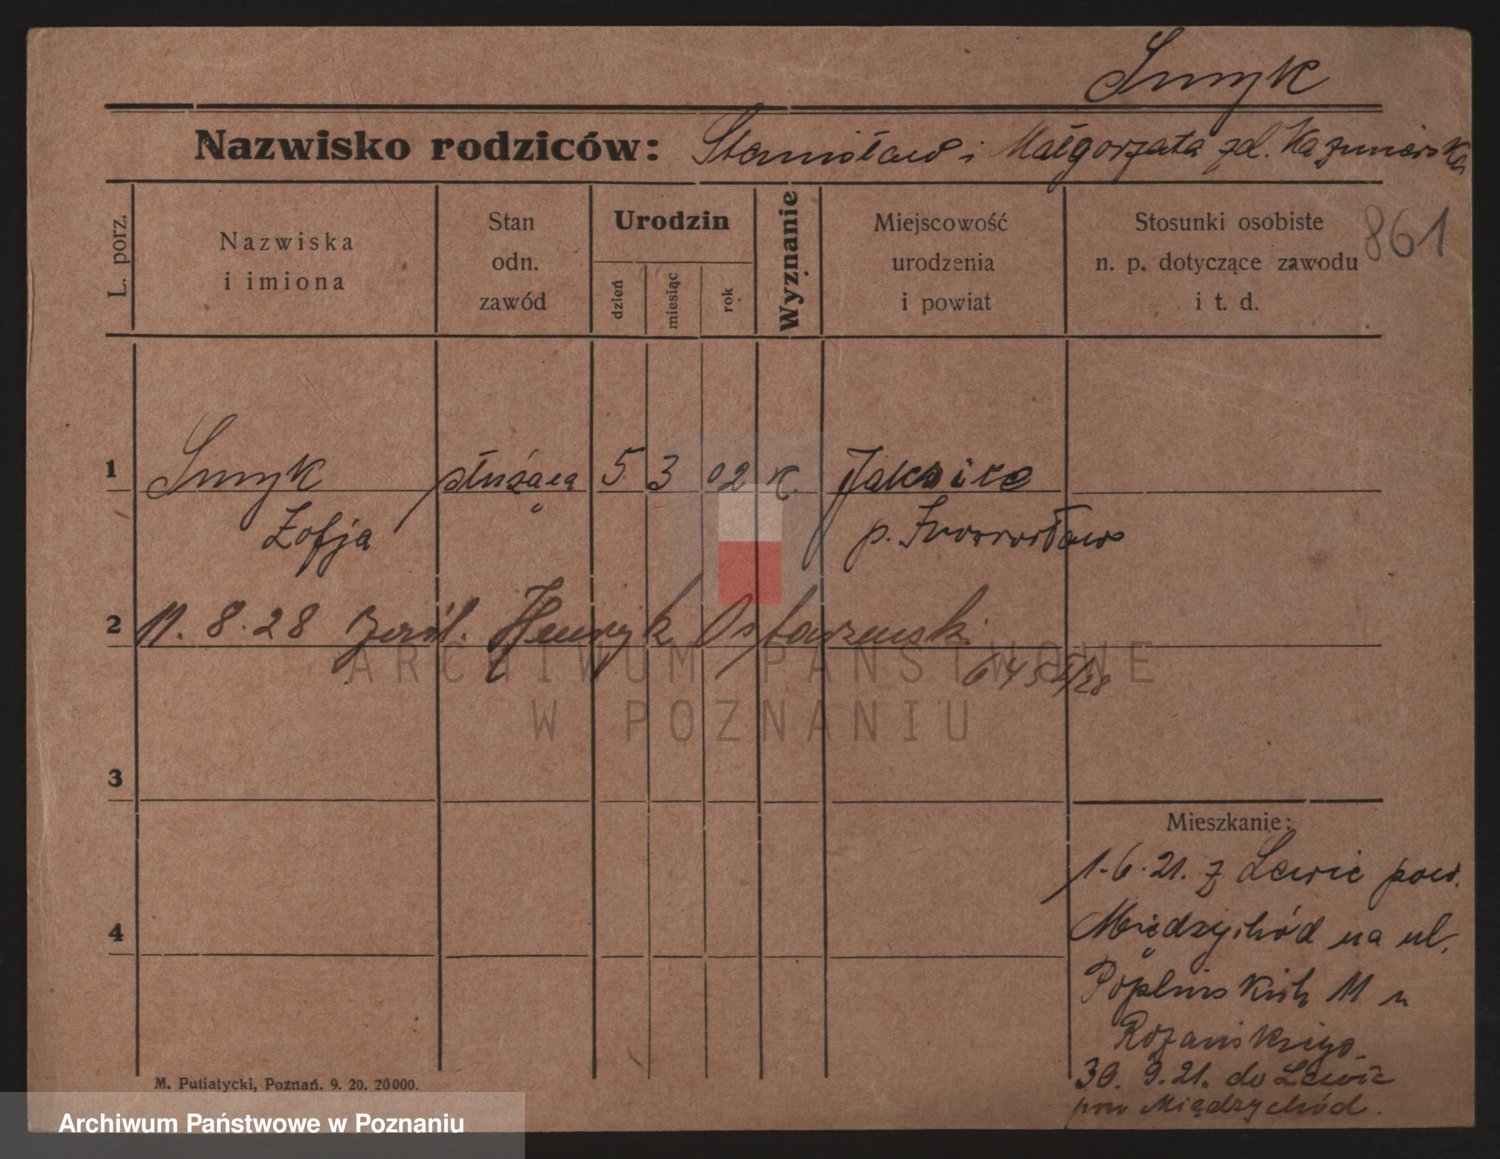 Smyk
Nazwisko rodziców: Stanisław i Małgorzata zd. Kazmierska
861
L. porz.
Nazwiska
i imiona
Stan
odn.
zawód
Urodzin
dzień
miesiąc
rok
Wyznanie
Miejscowość
urodzenia
i powiat
Stosunki osobiste
n. p. dotyczące zawodu
i t. d.
1 Smyk służąca 5 3 02 K. Jaksice
Zofja p. Inowrocław
2 11. 8. 28 Henryk
6451/28
3
Mieszkanie:
1.6.21. z Lewic pow.
4
Międzychód na ul.
Poplińskich 11 u
Rożańskiego.
30. 9.21. do Lewic
pow Międzychód.
M. Putiatycki, Poznań. 9. 20. 20000.
ARCHIWUM PAŃSTWOWE
W POZNANIU
Archiwum Państwowe w Poznaniu